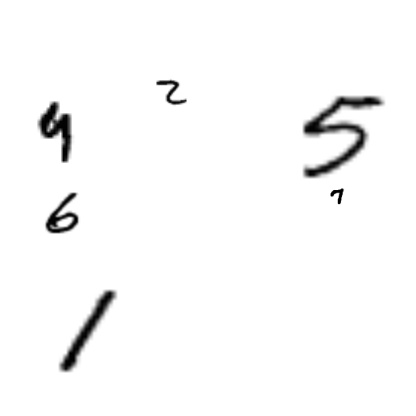 2
9 5
6 7
1